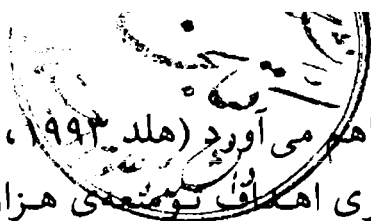 اهم می آورد (هلد ۱۹۹۳،
ری اهداف توسعه‌ی هزار